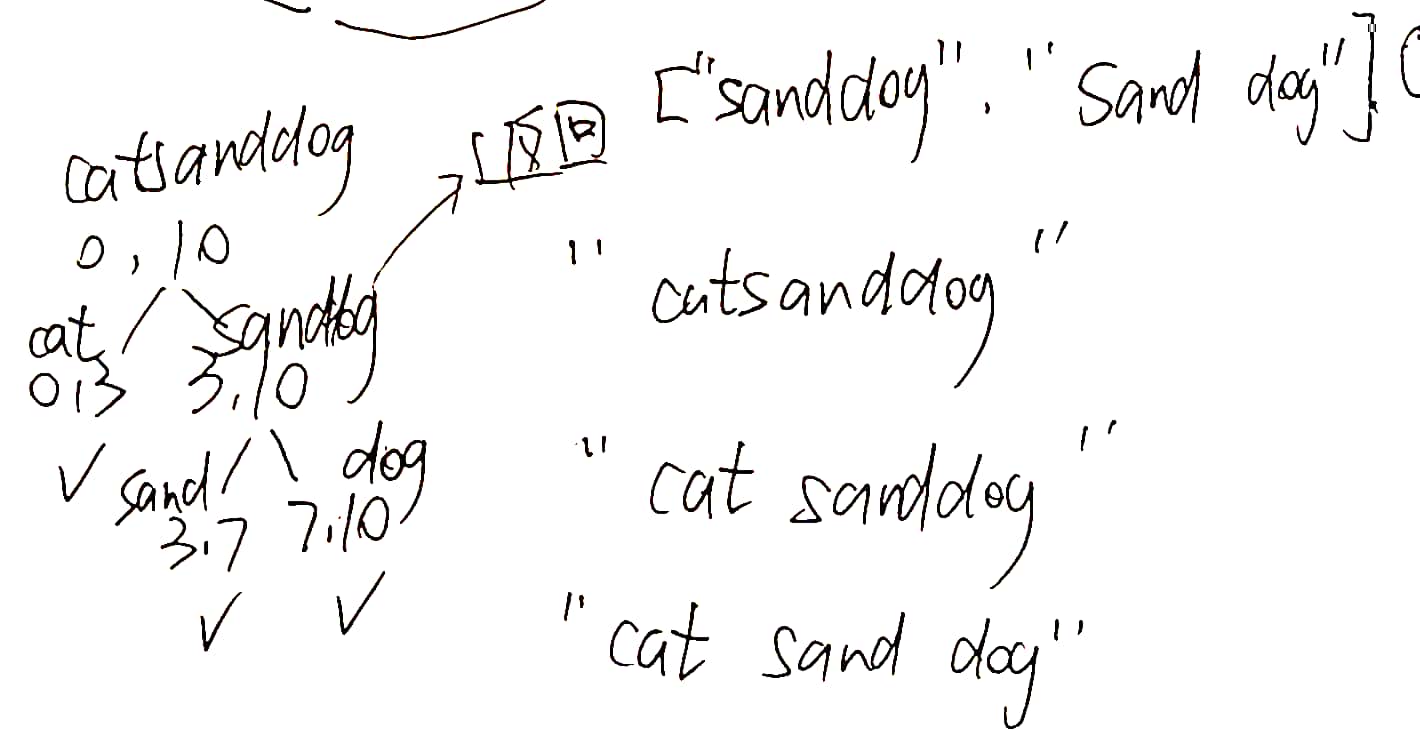 ["sanddog", "Sand dog"]
catsanddog
0, 10
"catsanddog"
cat sanddog
0,3 3,10
"cat sanddog"
sand dog
3,7 7,10
"cat sand dog"